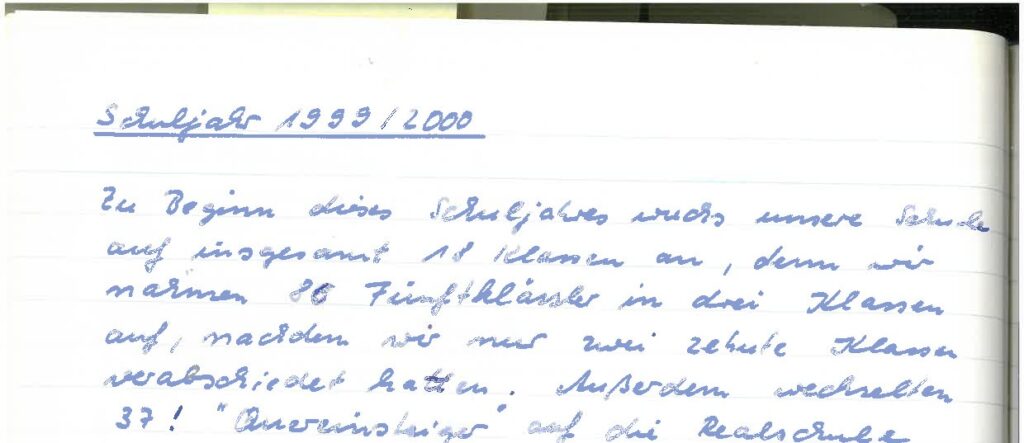 Schuljahr 1999/2000
Zu Beginn dieses Schuljahres wuchs unsere Schule
auf insgesamt 18 Klassen an, denn wir
nahmen 86 Fünftklässler in drei Klassen
auf, nachdem wir nur zwei zehnte Klassen
verabschiedet hatten. Außerdem wechselten
37! "Quereinsteiger" auf die Realschule